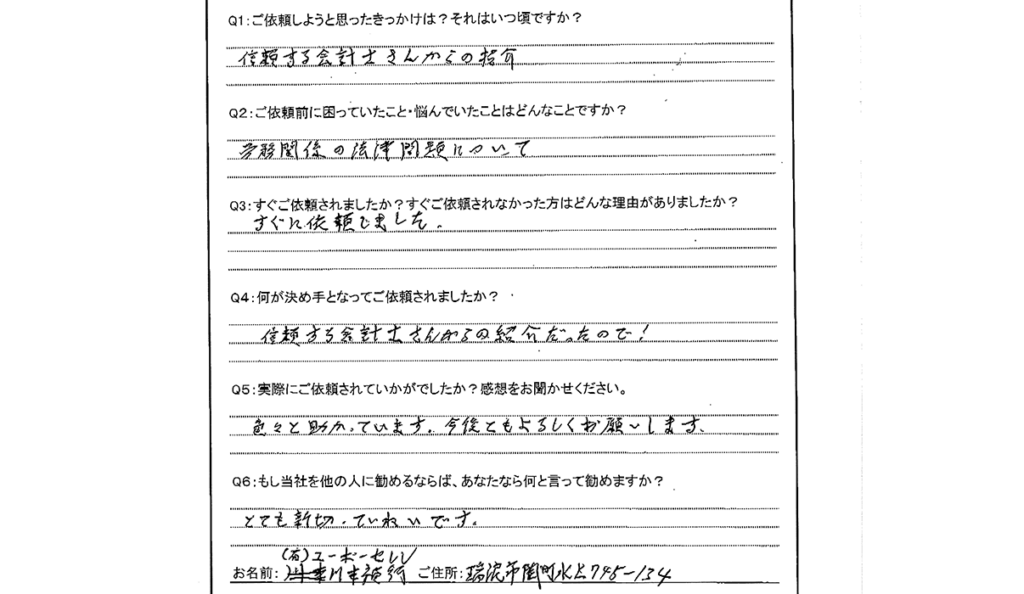 Q1:ご依頼しようと思ったきっかけは？それはいつ頃ですか？
信頼する会計士さんからの紹介
Q2:ご依頼前に困っていたこと・悩んでいたことはどんなことですか？
労務関係の法律問題について
Q3:すぐご依頼されましたか？すぐご依頼されなかった方はどんな理由がありましたか？
すぐに依頼しました。
Q4:何が決め手となってご依頼されましたか？
信頼する会計士さんからの紹介だったので！
Q5:実際にご依頼されていかがでしたか？感想をお聞かせください。
色々と助かっています。今後ともよろしくお願いします。
Q6:もし当社を他の人に勧めるならば、あなたなら何と言って勧めますか？
とても新切、ていねいです。
(有)ユーボーセレソ
お名前: ご住所:瑞浪市 町水上795-134